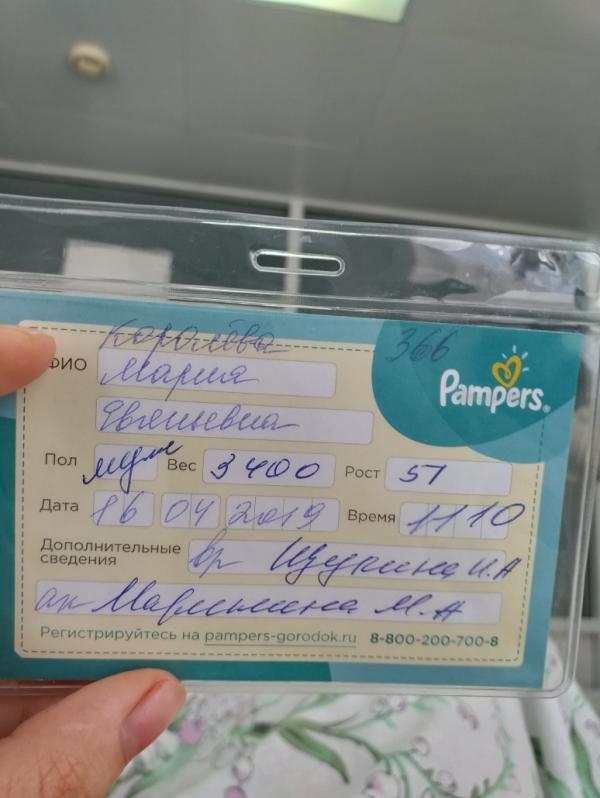 Королёва 366
ФИО Мария
Pampers
Евгеньевна
Пол муж Вес 3400 Рост 51
Дата 16 04 2019 Время 11 10
Дополнительные сведения вр Щукина И.А
ак М.А
Регистрируйтесь на pampers-gorodok.ru 8-800-200-700-8